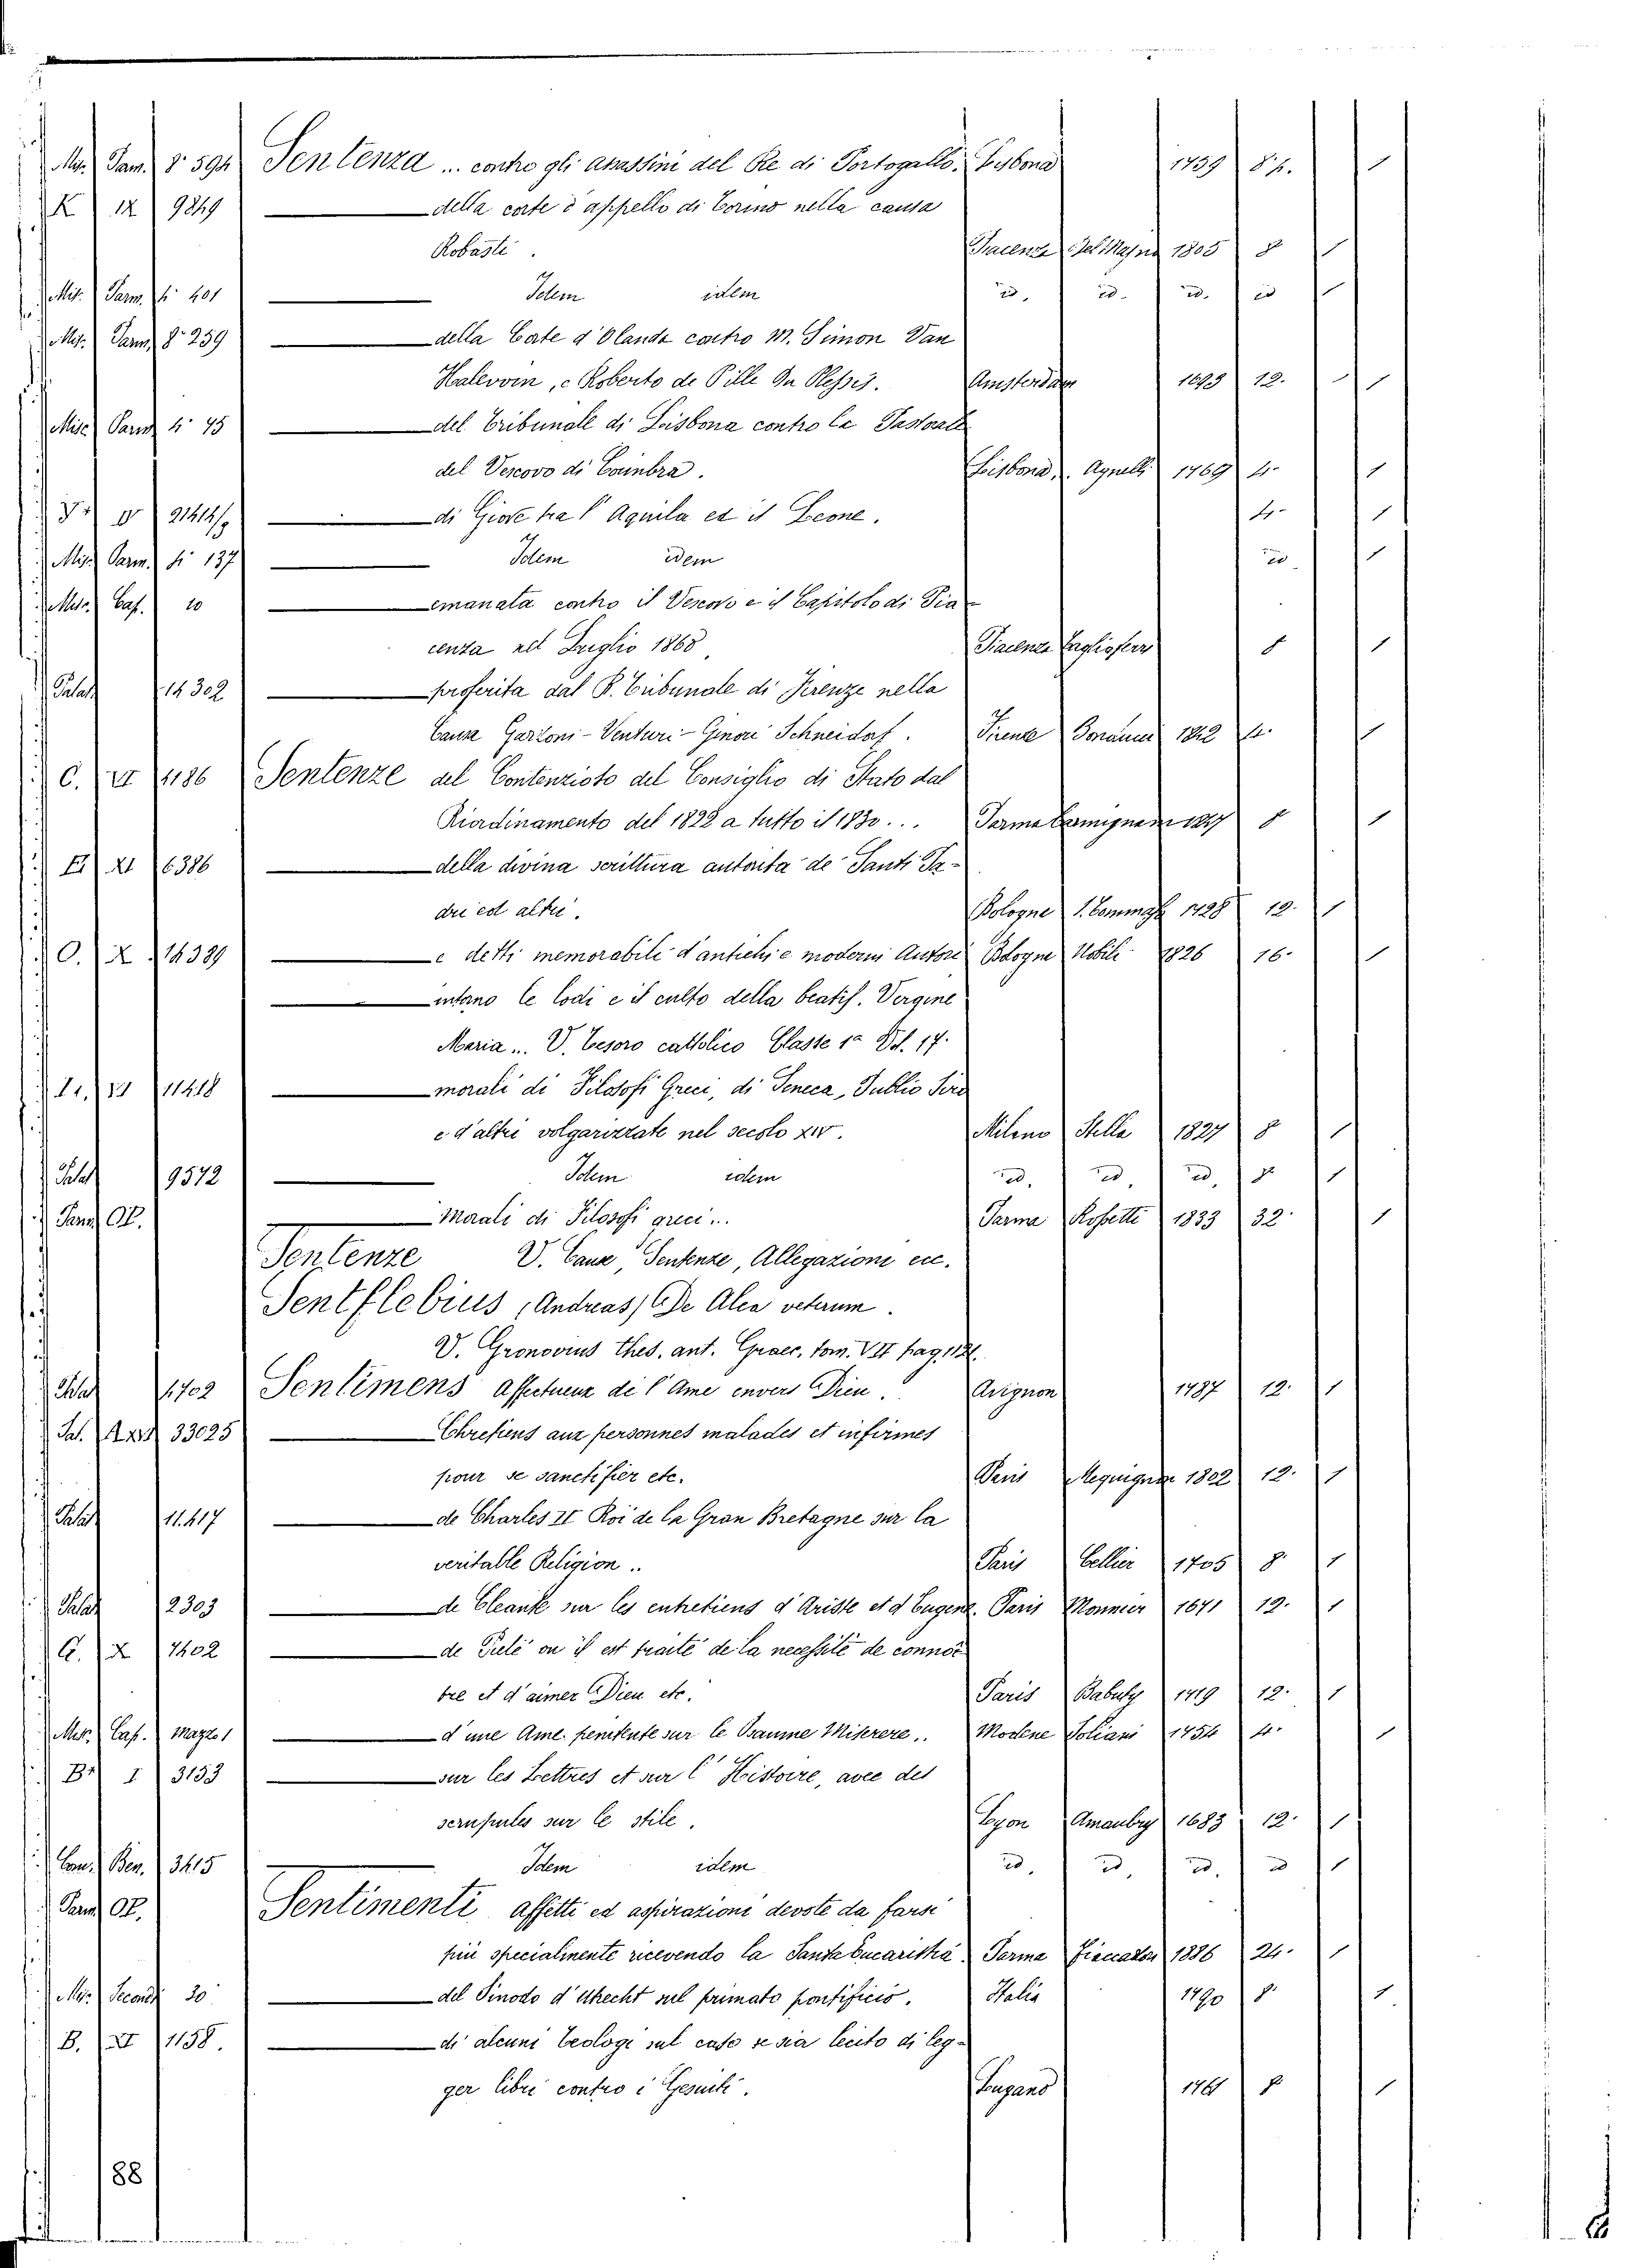 Mis. Parm. 8° 594 Sentenza ... contro gli assassini del Re di Portogallo. Lisbona 1759 8. p. 1
K 12 9849 della corte d'appello di Torino nella causa
Robasti. Piacenza Del Majno 1805 8 1
Mis. Parm. 4° 401 Idem idem id. id. id. id 1
Mis. Parm. 8° 259 della Corte d'Olanda contro M. Simon Van
Halevvin, e Roberto de Pille Du Plessis. Amsterdam 1693 12. 1
Misc. Parm. 4° 45 del Tribunale di Lisbona contro la Pastorale
del Vescovo di Coimbra. Lisbona, Agnelli 1769 4. 1
di Giove tra l'Aquila ed il Leone. 4. 1
Mis. Parm. 4° 137 Idem idem id. 1
Misc. Caf. 10 emanata contro il Vescovo e il Capitolo di Pia-
cenza nel Luglio 1868. Piacenza Tagliaferri 8 1
Palat 14302 proferita dal R. Tribunale di Firenze nella
Causa Garzoni-Venturi-Ginori Schneidorf. Firenze 1842 4. 1
C. VI 4186 Sentenze del Contenzioso del Consiglio di Stato dal
Riordinamento del 1822 a tutto il 1830... Parma Carmignani 1847 8 1
E XI 6386 della divina scrittura autorita de' Santi Pa-
dri ed altri. Bologna 1728 12. 1
O. X 14389 e detti memorabili d'antichi e moderni Autori Bologna Nobili 1826 16. 1
intorno le lodi e il culto della beatis. Vergine
Maria... V. Tesoro cattolico Classe 1a Vol. 17.
11418 morali di Filosofi Greci, di Seneca, Publio Siro
e d'altri volgarizzate nel secolo XIV. Milano Stella 1827 8 1
Palat 9572 Idem idem id. id. id. 8. 1
Parm. Ob. Morali di Filosofi greci... Parma Rossetti 1833 32. 1
Sentenze V. Cause, Sentenze, Allegazioni ecc.
Sentflebius (Andreas) De Alea veterum.
V. Gronovius Thes. ant. Graec. tom. VII pag. 1121.
Palat 1702 Sentimens affectueux de l'Ame envers Dieu. Avignon 1787 12. 1
Pal. 33025 Chretiens aux personnes malades et infirmes
pour se sanctifier etc. Paris Mequignon 1822 12. 1
Palat 11.417 de Charles II Roi de la Gran Bretagne sur la
veritable Religion.. Paris Cellier 1705 8. 1
Palat 2303 de Cleante sur les entretiens d'Ariste et d'Eugene. Paris Monnier 1671 12. 1
G. X 7402 de Pieté ou il est traité de la necessité de connoi-
tre et d'aimer Dieu etc. Paris Babuty 1719 12. 1
Mis. Caf. Mazzo 1 d'une Ame penitente sur le Psaume Miserere.. Modene Soliani 1754 4. 1
B I 3133 sur les Lettres et sur l'Histoire, avec des
scrupules sur le stile. Lyon Amaulry 1683 12. 1
Com. Ben. 3415 Idem idem id. id. id. id 1
Parm. Ob. Sentimenti affetti ed aspirazioni devote da farsi
più specialmente ricevendo la Santa Eucaristia. Parma Fiaccadori 1886 24. 1
Mis. Secondi 30 del Sinodo d'Utrecht sul primato pontificio. Italia 1790 8. 1
B. XI 1158. di alcuni Teologi sul caso se sia lecito di leg-
ger libri contro i Gesuiti. Lugano 1761 8 1
88